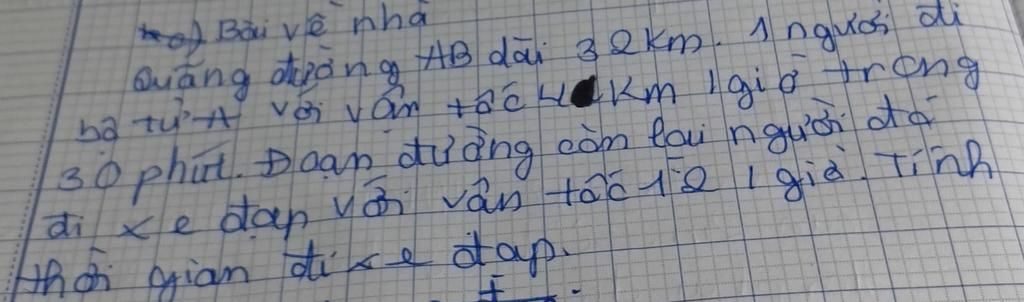 Bài về nhà
Quãng đường AB dài 32km. 1 người đi
bộ từ A với vận tốc 4 km / giờ trong
30 phút. Đoạn đường còn lại người đó
đi xe đạp với vận tốc 12 / giờ. Tính
thời gian đi xe đạp.